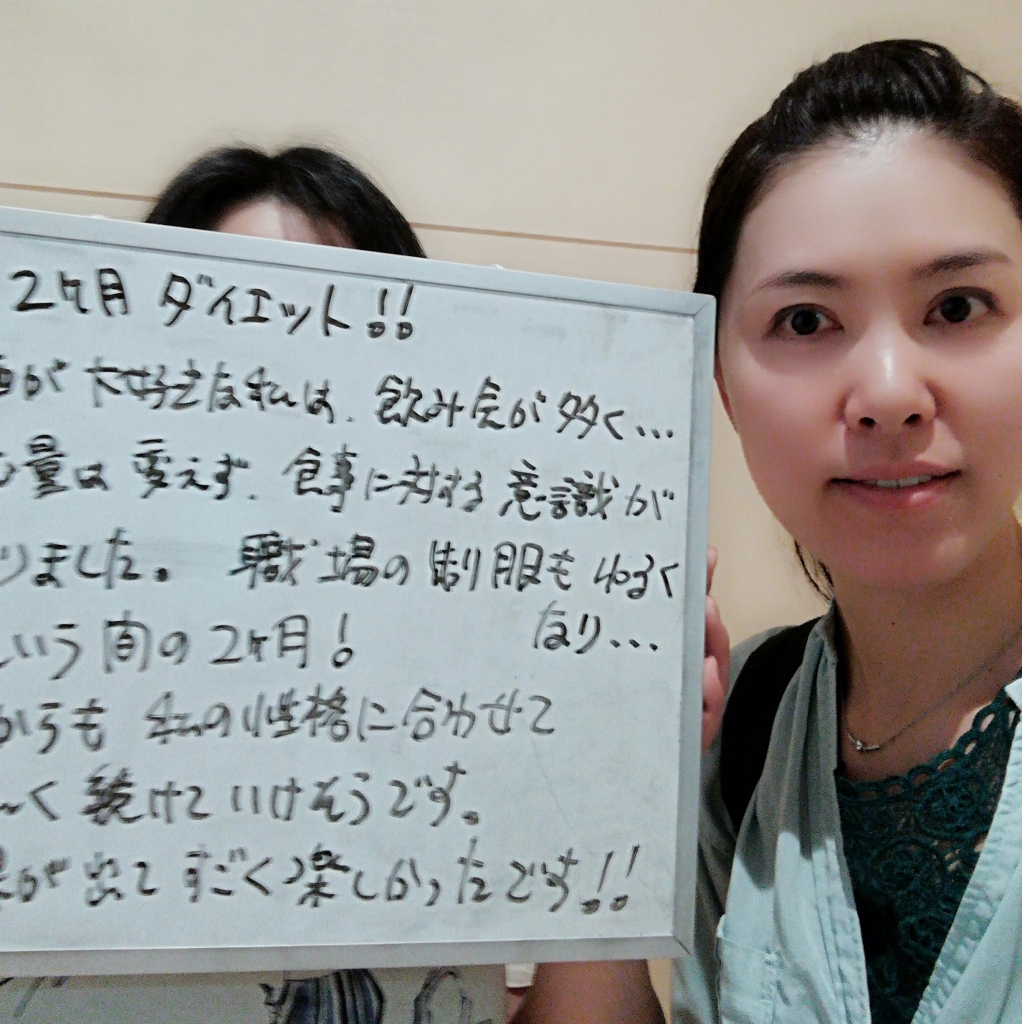 2ヶ月 ダイエット!!
が 大好きな私は、飲み会が多く...
量は変えず、食事に対する意識が
りました。 職場の制服もゆるく
なり...
という間の2ヶ月!
からも 私の性格に合わせて
く続けていけそうです。
が出てすごく楽しかったです!!